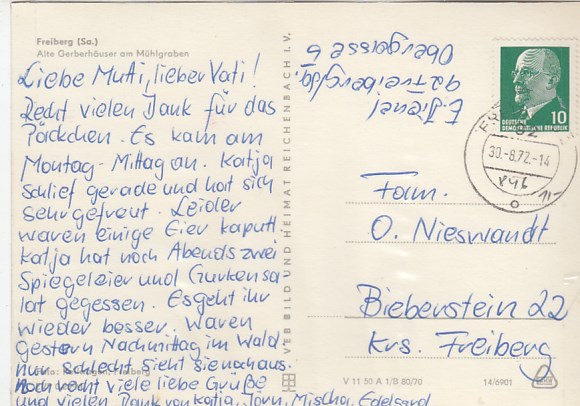 Freiberg (Sa.)
Alte Gerberhäuser am Mühlgraben
Liebe Mutti, lieber Vati!
Recht vielen Dank für das
Päckchen. Es kam am
Montag-Mittag an. Katja
schlief gerade und hat sich
sehr gefreut. Leider
waren einige Eier kaputt.
Katja hat noch Abends zwei
Spiegeleier und Gurkensa
lat gegessen. Es geht ihr
wieder besser. Waren
gestern Nachmittag im Wald
nur schlecht sieht sie noch aus.
Noch recht viele liebe Grüße
und vielen Dank von Katja, Jörn, Mischa, Edelgard
VEB BILD UND HEIMAT REICHENBACH I. V.
E. Dienel
92 Freiberg/Sa.
Obergasse 6
DEUTSCHE
DEMOKRATISCHE REPUBLIK
10
30.-8.72.-14
Fam.
O. Nieswandt
Bieberstein 22
Krs. Freiberg
V 11 50 A 1/B 80/70
14/6901